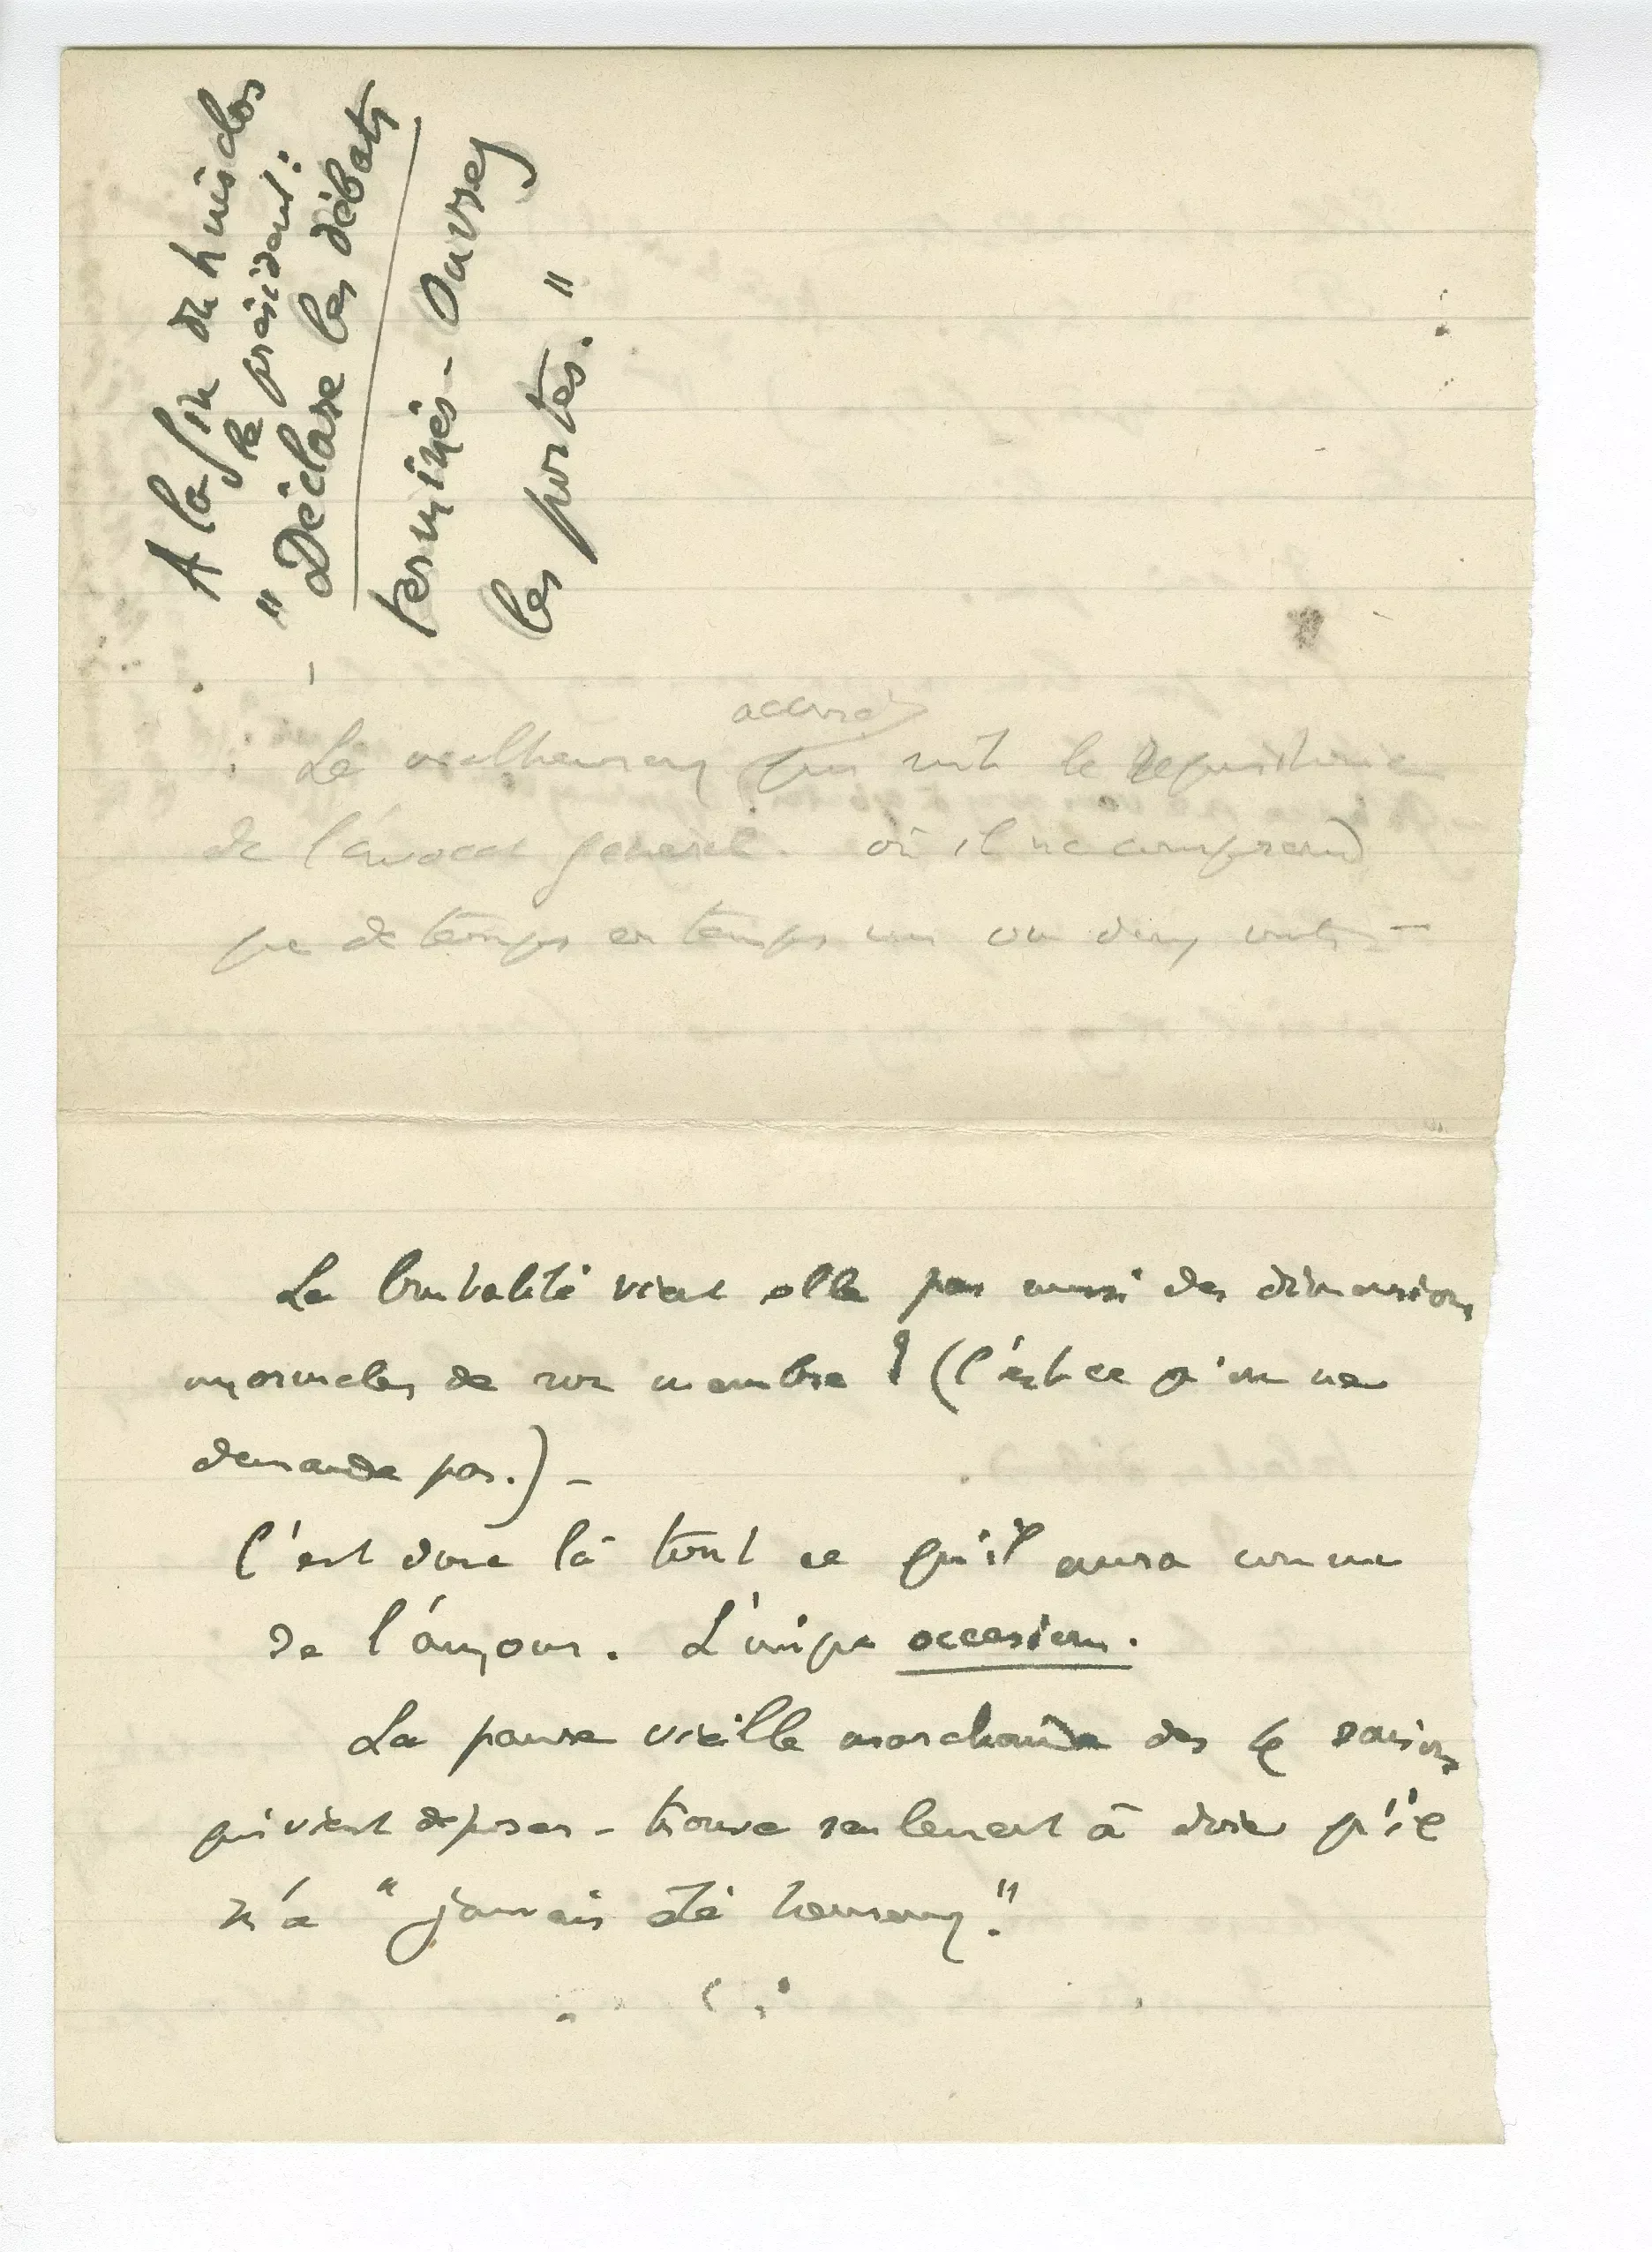 A la fin du huis clos
le président :
" Déclare les débats
terminés - Ouvrez
les portes. "
accusé
Le malheureux qui suit le requisitoire
de l'avocat général. où il ne comprend
que de temps en temps un ou deux mots -
La brutalité vient elle pas aussi des dimensions
anormales de son membre ? (C'est ce qu'on ne
demande pas.) -
C'est donc là tout ce qu'il aura connu
de l'amour. L'unique occasion.
La pauvre vieille marchande des 4 saisons
qui vient deposer - trouve seulement à dire qu'il
n'a " jamais été heureux. "